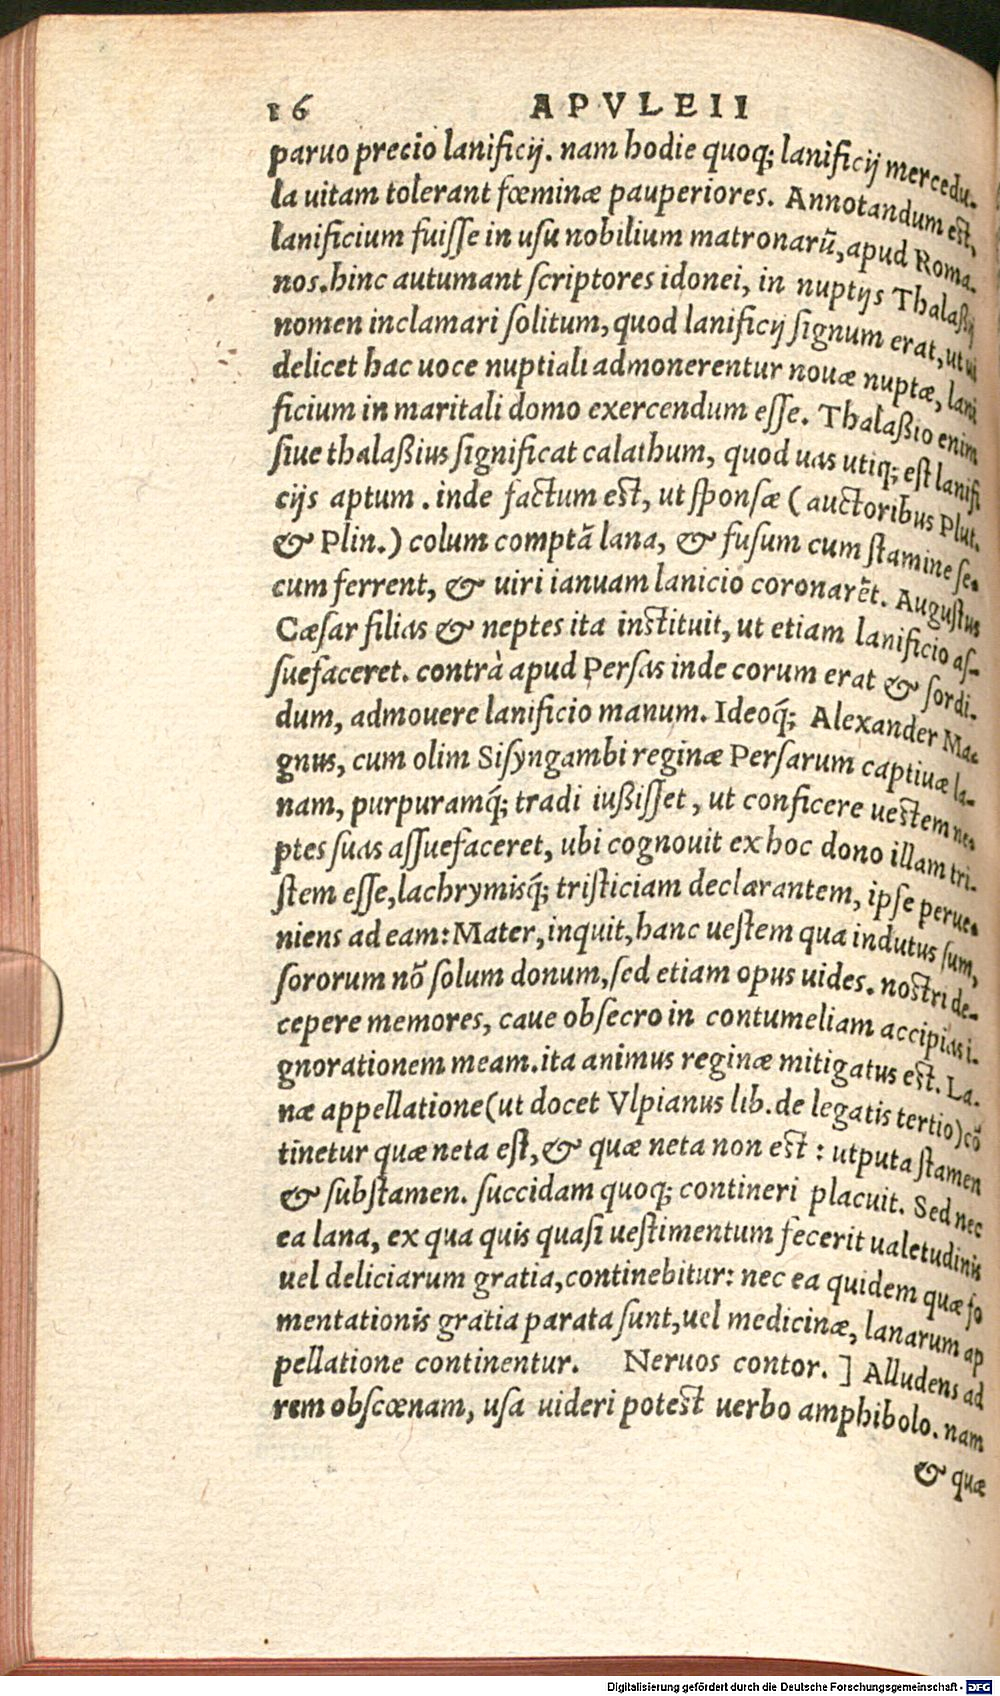 16 APVLEII
paruo precio lanificij. nam hodie quoq; lanificij mercedu-
la uitam tolerant fœminæ pauperiores. Annotandum est,
lanificium fuisse in usu nobilium matronarũ, apud Roma-
nos. hinc autumant scriptores idonei, in nuptijs Thalaßij
nomen inclamari solitum, quod lanificij signum erat, ut ui
delicet hac uoce nuptiali admonerentur nouæ nuptæ, lani
ficium in maritali domo exercendum esse. Thalaßio enim
siue thalaßius significat calathum, quod uas utiq; est lanifi
cijs aptum. inde factum est, ut sponsæ (auctoribus Plut.
& Plin.) colum comptã lana, & fusum cum stamine se-
cum ferrent, & uiri ianuam lanicio coronarẽt. Augustus
Cæsar filias & neptes ita instituit, ut etiam lanificio as-
suefaceret. contrà apud Persas indecorum erat & sordi-
dum, admouere lanificio manum. Ideoq́; Alexander Ma-
gnus, cum olim Sisyngambi reginæ Persarum captiuæ la-
nam, purpuramq́; tradi iußisset, ut conficere uestem ne-
ptes suas assuefaceret, ubi cognouit ex hoc dono illam tri-
stem esse, lachrymisq́; tristiciam declarantem, ipse perue-
niens ad eam: Mater, inquit, hanc uestem qua indutus sum,
sororum nõ solum donum, sed etiam opus uides. nostri de-
cepere memores, caue obsecro in contumeliam accipias i-
gnorationem meam. ita animus reginæ mitigatus est. La-
næ appellatione (ut docet Vlpianus lib. de legatis tertio) cõ
tinetur quæ neta est, & quæ neta non est : utputa stamen
& substamen. succidam quoq; contineri placuit. Sed nec
ea lana, ex qua quis quasi uestimentum fecerit ualetudinis
uel deliciarum gratia, continebitur: nec ea quidem quæ fo
mentationis gratia parata sunt, uel medicinæ, lanarum ap
pellatione continentur. Neruos contor. ] Alludens ad
rem obscœnam, usa uideri potest uerbo amphibolo. nam
& quæ
Digitalisierung gefördert durch die Deutsche Forschungsgemeinschaft - DFG